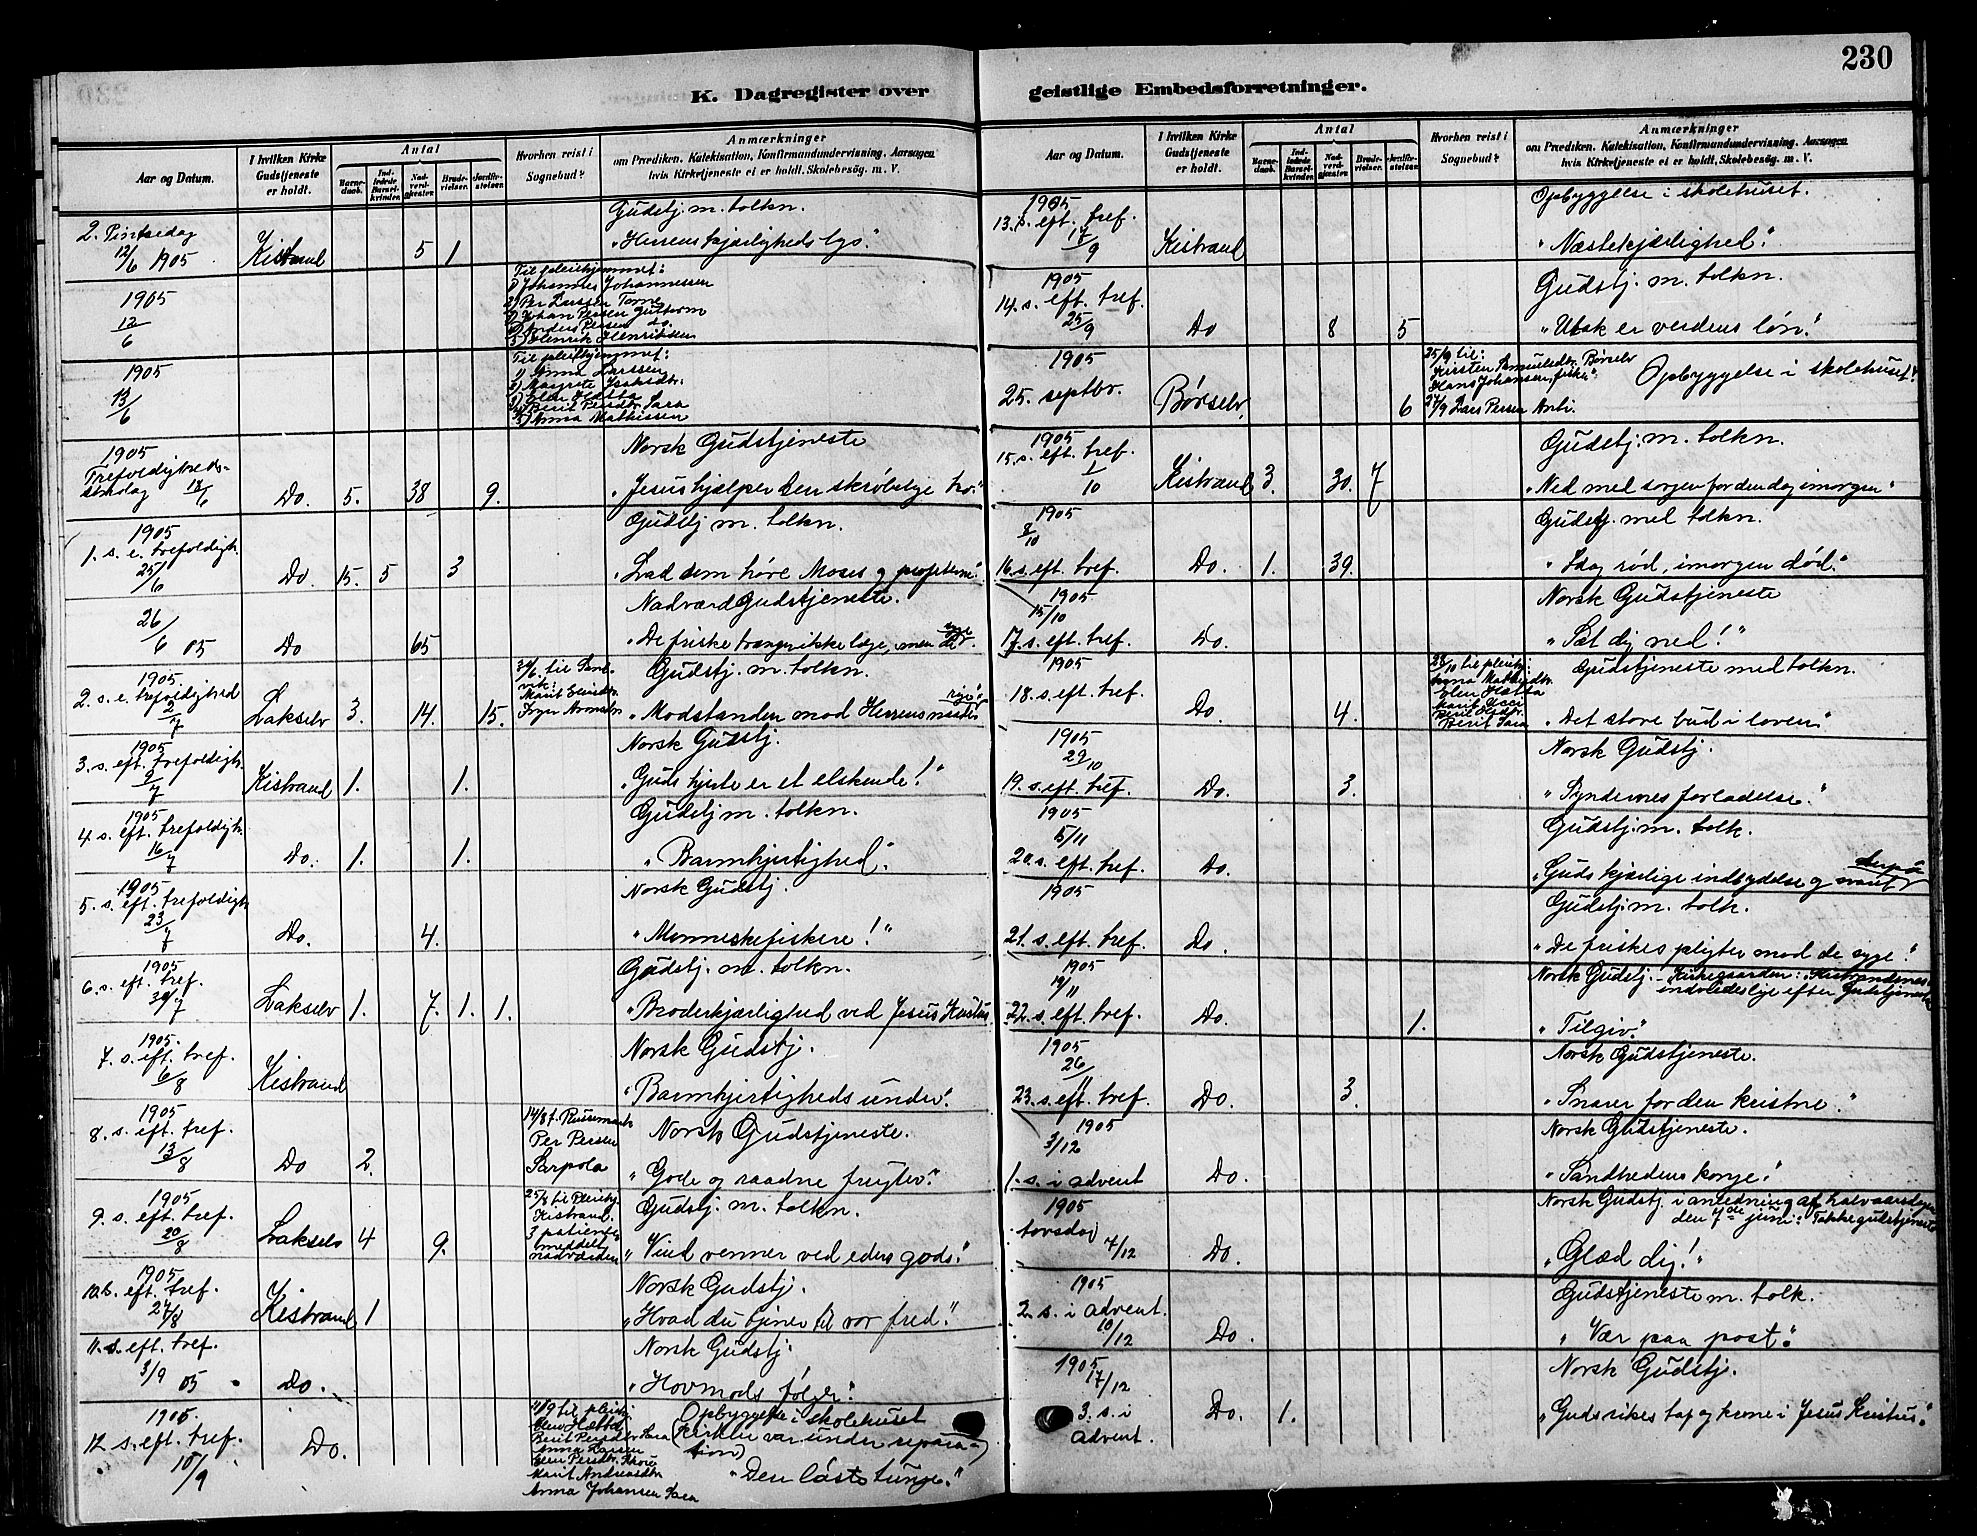 230
K. Dagregister over
geistlige Embedsforretninger.
Aar og Datum.
I hvilken Kirke
Gudstjeneste
er holdt.
Antal
Barne-
daab.
Ind-
ledede
Barsel-
kvinder.
Nad-
verd-
gjæster.
Brude-
vielser.
Jordfæ-
stelser.
Hvorhen reist i
Sognebud?
Anmærkninger
om Prædiken, Katekisation, Konfirmandundervisning, Aarsagen
hvis Kirketjeneste ei er holdt, Skolebesøg, m. V.
2. Pintsedag
12/6 1905 Kistrand 5 1
Gudstj. m. tolkn.
"Herrens kjærligheds lys."
1905
12/6
Til pleiehjemmet:
1) Johannes Johannessen
2) Per Larssen Torne
3) Johan Persen Guttorm
4) Anders Persen do.
5) Henrik Henriksen
1905
13/6
Til pleiehjemmet:
1) Anna Larssen
2) Margrete Isaksdtr.
3) Elen Hætta
4) Berit Persdtr. Sara
5) Anna Mathissen
1905
Trefoldigheds-
søndag 18/6 Do. 5. 38 9.
Norsk Gudstjeneste
"Jesus hjælper den skrøbelige tro."
1905
1. s. e. trefoldigh.
25/6 Do. 15. 5 3
Gudstj. m. tolkn.
"Lad dem høre Moses og profeterne."
26/6 05 Do 65
Nadverd Gudstjeneste.
"De friske trænger ikke læge, men de syge".
1905.
2. s. e. trefoldighed
2/7 Lakselv 3. 14. 15.
Gudstj. m. tolkn.
"Modstanden mod Herrens naades rige"
1905
3. s. eft. trefoldigh.
9/7 Kistrand 1. 1.
Norsk Gudstj.
"Guds hjerte er et elskende!"
1905
4. s. eft. trefoldigh.
16/7 Do. 1. 1.
Gudstj m. tolkn.
"Barmhjertighed".
1905
5. s. eft. trefoldigh
23/7 Do. 4.
Norsk Gudstj.
"Menneskefiskere!"
1905
6. s. eft. tref.
30/7 Lakselv 1. 7. 1. 1.
Gudstj. m. tolkn.
"Broderkjærlighed ved Jesus Kristus
1905.
7. s. eft. tref.
6/8 Kistrand
Norsk Gudstj.
"Barmhjertigheds under."
1905
8. s. eft. tref.
13/8 Do 2.
14/8 t. Russemark
Per Persen
Sarpola
Norsk Gudstjeneste.
"Gode og raadne frugter."
1905
9. s. eft. tref.
20/8 Lakselv 4 9.
25/8 til Pleiehj.
Kistrand.
3 patienter
meddelt
nadverden
Gudstj. m. tolkn.
"Vind venner ved eders gods."
1905
10 s. eft. tref.
27/8 Kistrand 1
Norsk Gudstj.
"Hvad du tjener til vor fred."
11. s. eft. tref.
3/9 05 Do.
Norsk Gudstj.
"Hovmods følger."
1905
12 s. eft. tref.
10/9 Do.
11/9 til pleiehj.
Elen Hætta
Berit Persdtr Sara
Anna Larsen
Marit Andreasdtr
Anna Johansen Sara
Opbyggelse i skolehuset
(kirken var under repara-
tion)
"Den løste tunge."
Aar og Datum.
I hvilken Kirke
Gudstjeneste
er holdt.
Antal
Barne-
daab.
Ind-
ledede
Barsel-
kvinder.
Nad-
verd-
gjæster.
Brude-
vielser.
Jordfæ-
stelser.
Hvorhen reist i
Sognebud?
Anmærkninger
om Prædiken, Katekisation, Konfirmandundervisning, Aarsagen
hvis Kirketjeneste ei er holdt, Skolebesøg, m. V.
1905
13. s. eft. tref.
17/9 Kistrand
Opbyggelse i skolehuset.
"Næstekjærlighed."
1905
14. s. eft. tref.
25/9 Do 8 5
Gudstj. m. tolkn.
"Utak er verdens løn."
1905
25. septbr. Børselv. 6
25/9 til:
Kirsten Samuelsdtr. Børselv
Hans Johansen, fisker
27/9 Lars Persen Anti.
Opbyggelse i skolehuset
1905
15. s. eft. tref.
1/10 Kistrand 3. 30. 7
Gudstj. m. tolkn.
"Ned med sorgen for den dag imorgen"
1905
8/10
16. s. eft. tref. Do. 1. 39.
Gudstj. med tolkn.
"Idag rød, imorgen død."
1905
15/10
17. s. eft. tref. Do.
Norsk Gudstjeneste
"Sæt dig ned!"
1905
18. s. eft. tref. Do. 4.
23/10 til pleiehj:
Anna Mathisdtr
Elen Hætta
Berit Sara
Gudstjeneste med tolkn.
"Det store bud i loven"
1905
29/10
19. s. eft. tref. Do. 3.
Norsk Gudstj.
"Syndernes forladelse."
1905
5/11
20. s. eft. tref. Do.
Gudstj. m. tolk.
"Guds kjærlige indbydelse og svaret derpaa"
1905
21. s. eft. tref. Do.
Gudstj. m. tolk.
"De friskes pligter mod de syge."
1905
19/11
22. s. eft. tref. Do. 1.
Norsk Gudstj. - Kirkegaarden: Kistrandens
indviedes lige efter Gudstjenesten
"Tilgiv."
1905
26/11
23. s. eft. tref. Do. 3.
Norsk Gudstjeneste.
"Snarer for den kristne."
1905
3/12
1. s. i advent Do.
Norsk Gudstjeneste.
"Sandhedens konge."
1905
torsdag 7/12 Do.
Norsk Gudstj. i anledning af halvaarsdagen
den 7de juni: Takkegudstjeneste
"Glæd dig!"
1905
2. s. i advent.
10/12 Do.
Gudstjeneste m. tolk.
"Vær paa post."
1905
17/12
3. s. i
advent. Do. 1.
Norsk Gudstj.
"Guds rikes tap og krone i Jesus Kristus."